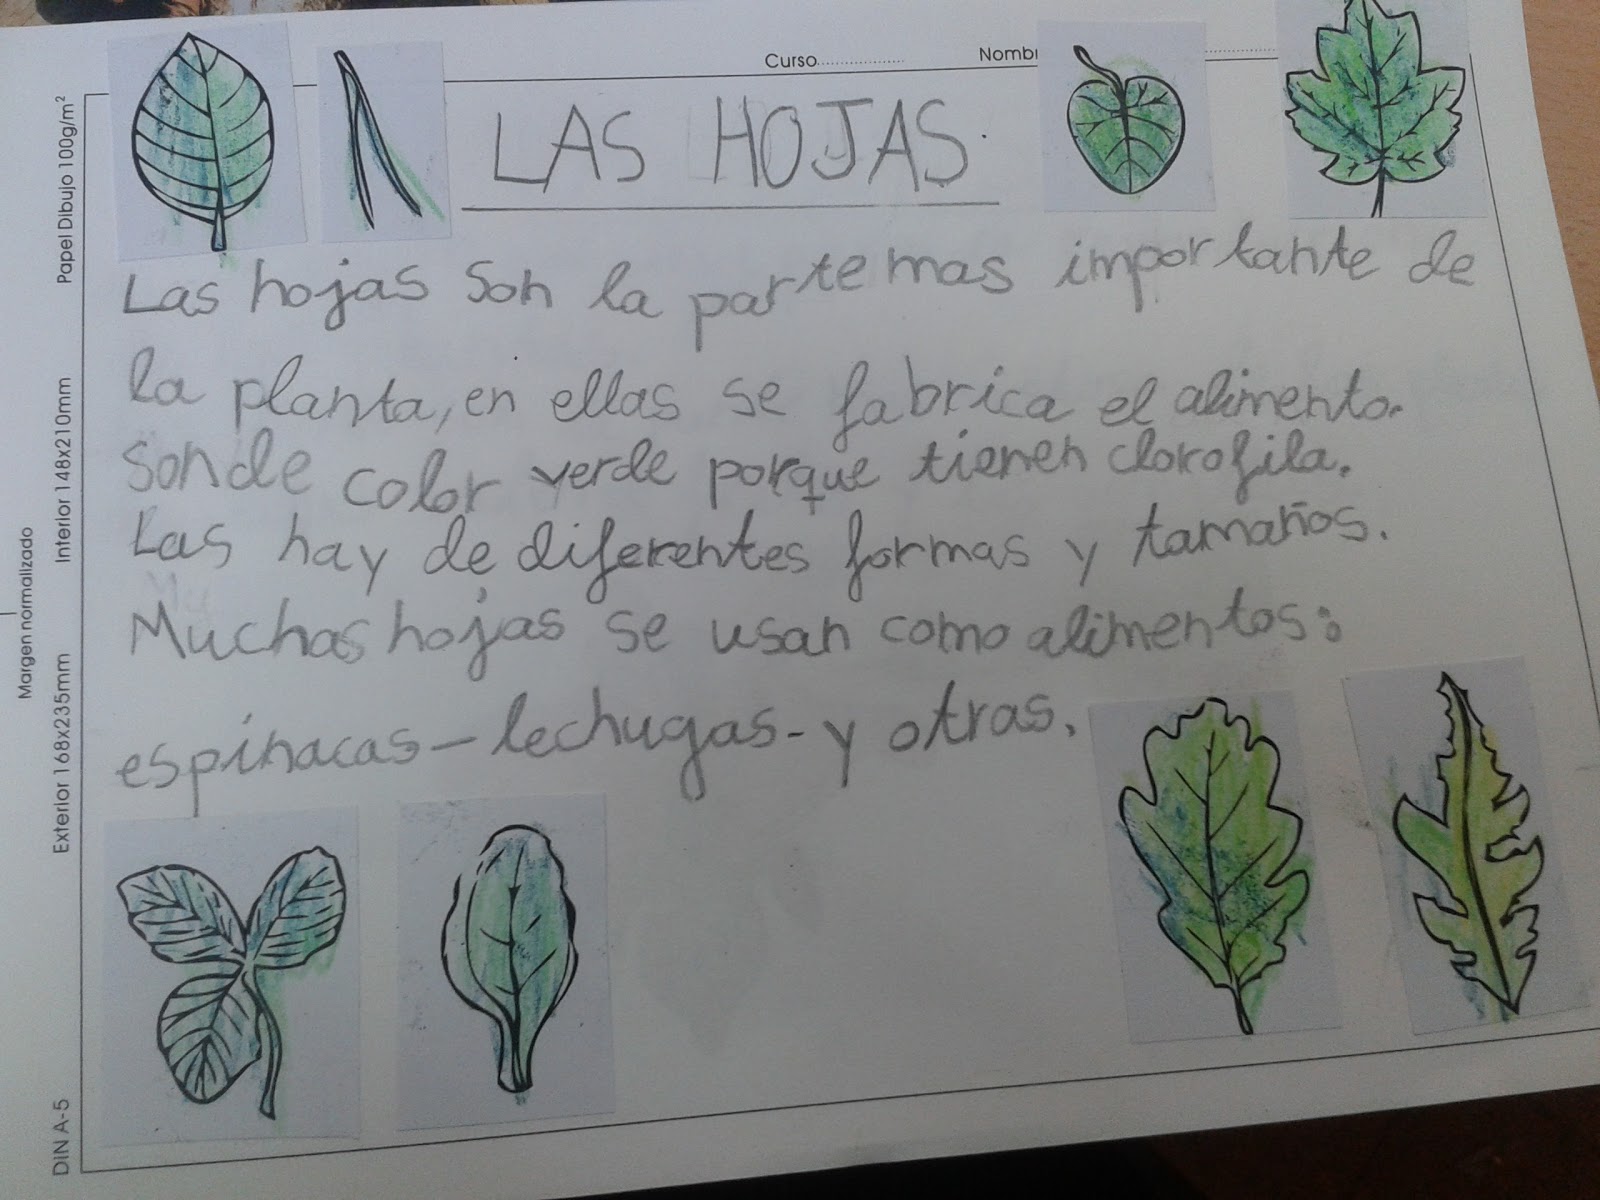 Curso
Nombr
LAS HOJAS.
Las hojas son la parte mas importante de
la planta, en ellas se fabrica el alimento.
Son de color verde porque tienen clorofila.
Las hay de diferentes formas y tamaños.
Muchas hojas se usan como alimentos:
espinacas-lechugas-y otras.
Papel Dibujo 100g/m²
Interior 148x210mm
Margen normalizado
Exterior 168x235mm
DIN A-5